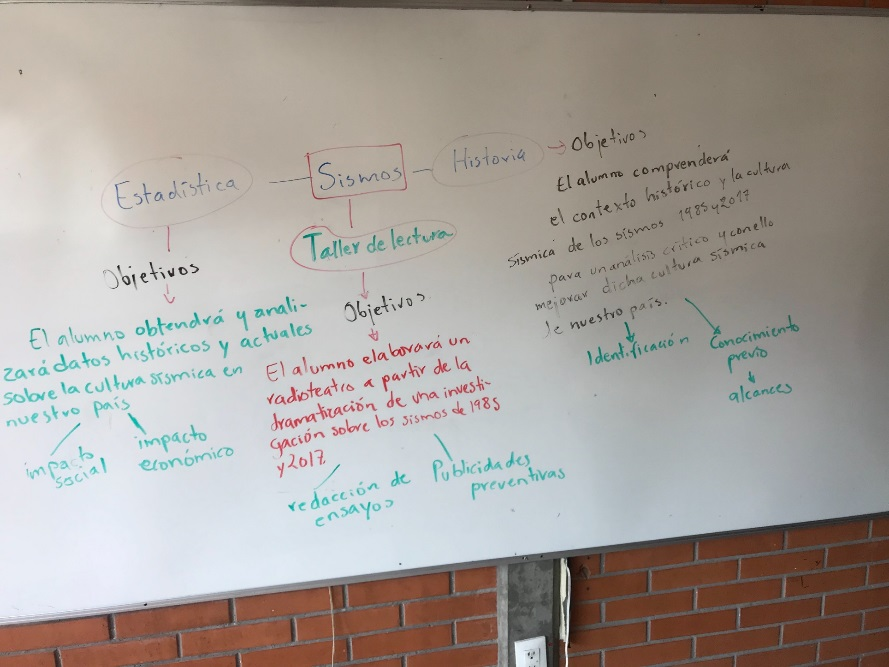 Sismos
Estadística
Objetivos
El alumno obtendrá y anali-
zará datos históricos y actuales
sobre la cultura sísmica en
nuestro país
impacto
social
impacto
económico
Taller de lectura
Objetivos
El alumno elaborará un
radioteatro a partir de la
dramatización de una investi-
gación sobre los sismos de 1985
y 2017
redacción de
ensayos
Publicidades
preventivas
Historia
Objetivos
El alumno comprenderá
el contexto histórico y la cultura
sísmica de los sismos 1985 y 2017
para un análisis crítico y con ello
mejorar dicha cultura sísmica
de nuestro país.
Identificación
Conocimiento
previo
alcances